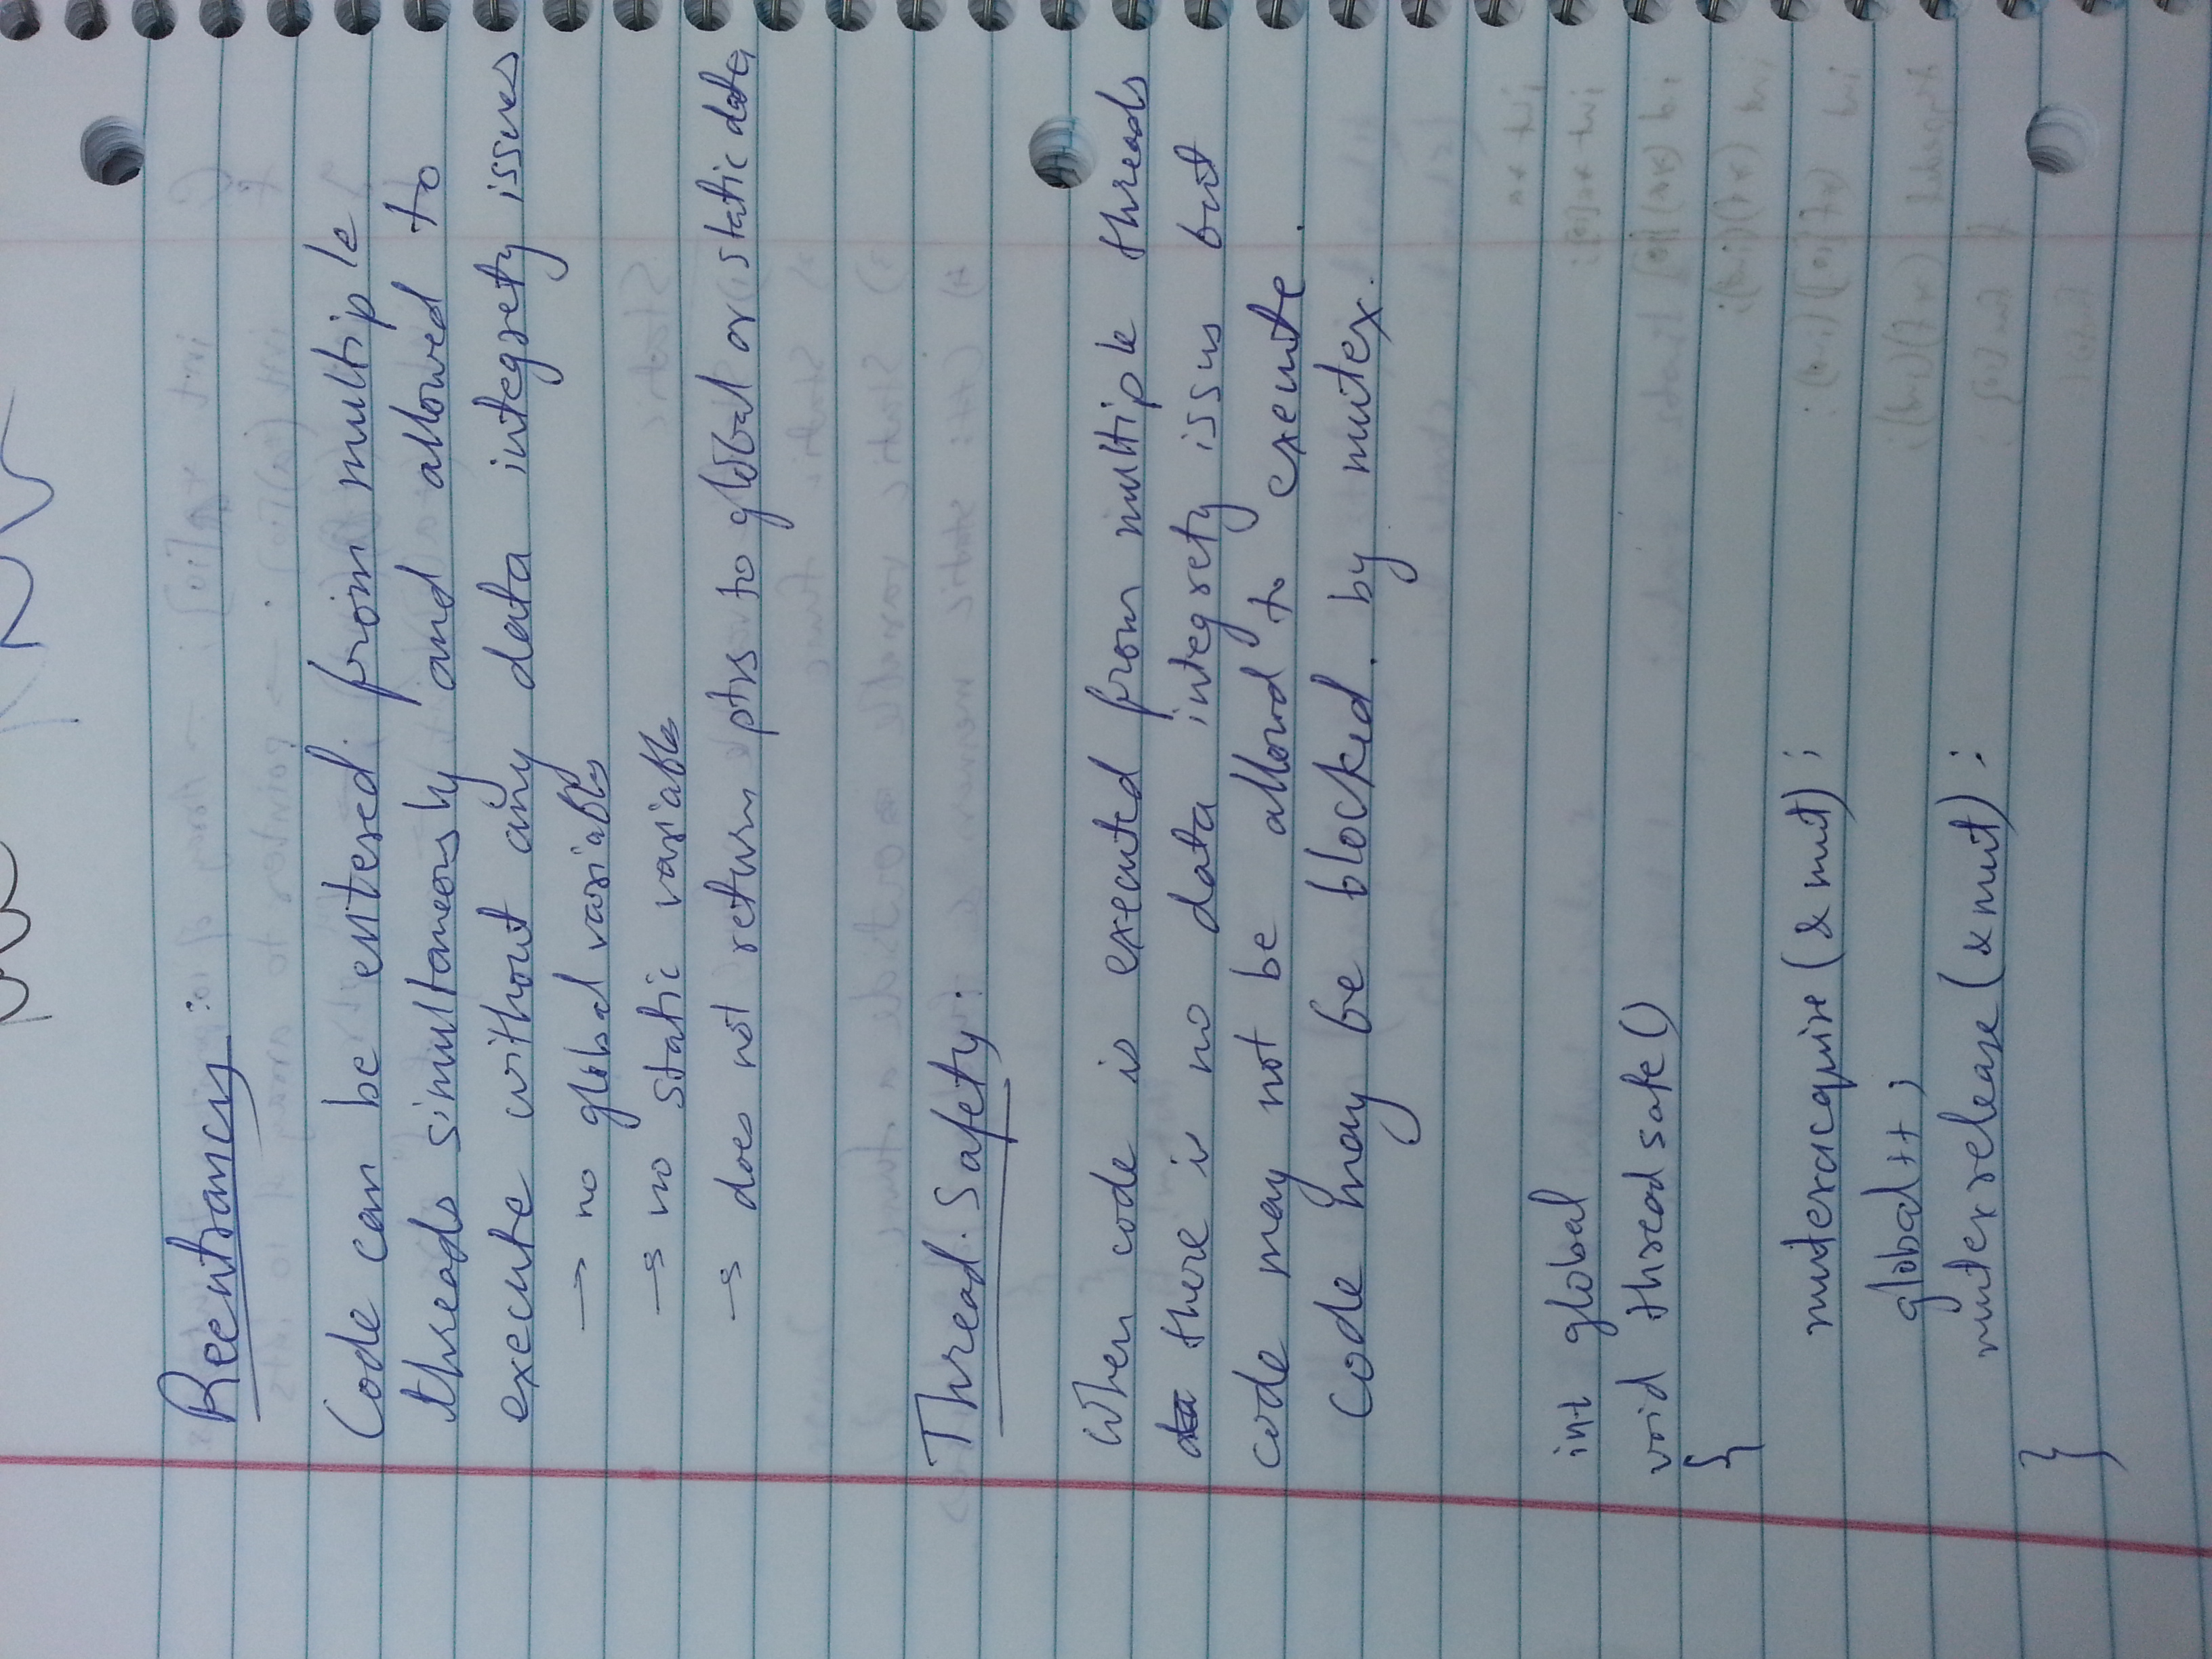 Reentrancy:
Code can be entered from multiple
threads simultaneously and allowed to
execute without any data integrety issues
→ no global variables
→ no static variables
→ does not return ptrs to global or static data
Thread Safety:
When code is executed from multiple threads
there is no data integrety issus but
code may not be allowd to execute.
Code may be blocked. by mutex.
int global
void threadsafe()
{
mutexacquire (&mut);
global++;
mutexrelease (&mut);
}